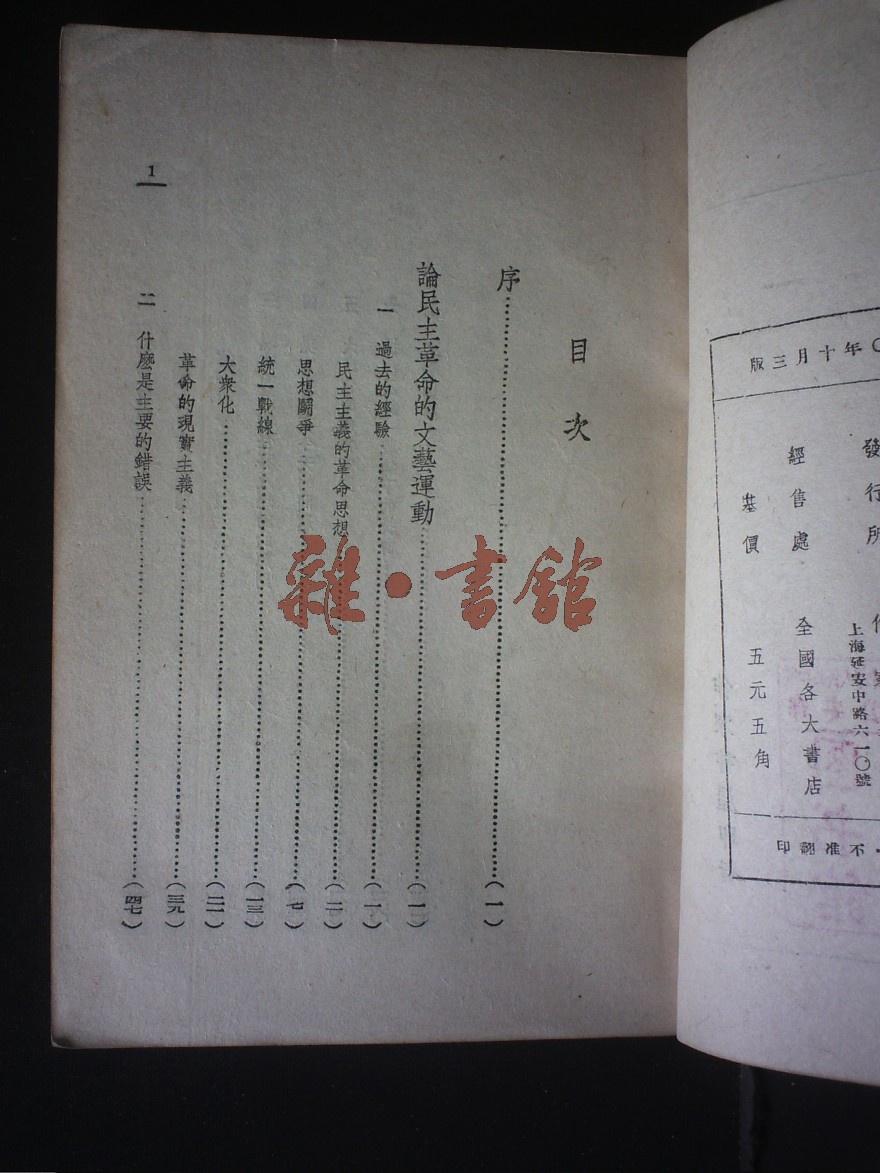 〇年十月三版
發行所
上海延安中路六一〇號
經售處 全國各大書店
基價 五元五角
・不准翻印
目次
序…………(一)
論民主革命的文藝運動…………(一)
一 過去的經驗…………(一)
民主主義的革命思想…………(二)
思想鬪爭…………(七)
統一戰線…………(一三)
大衆化…………(二一)
革命的現實主義…………(三九)
二 什麼是主要的錯誤…………(四七)
1
雜・書館